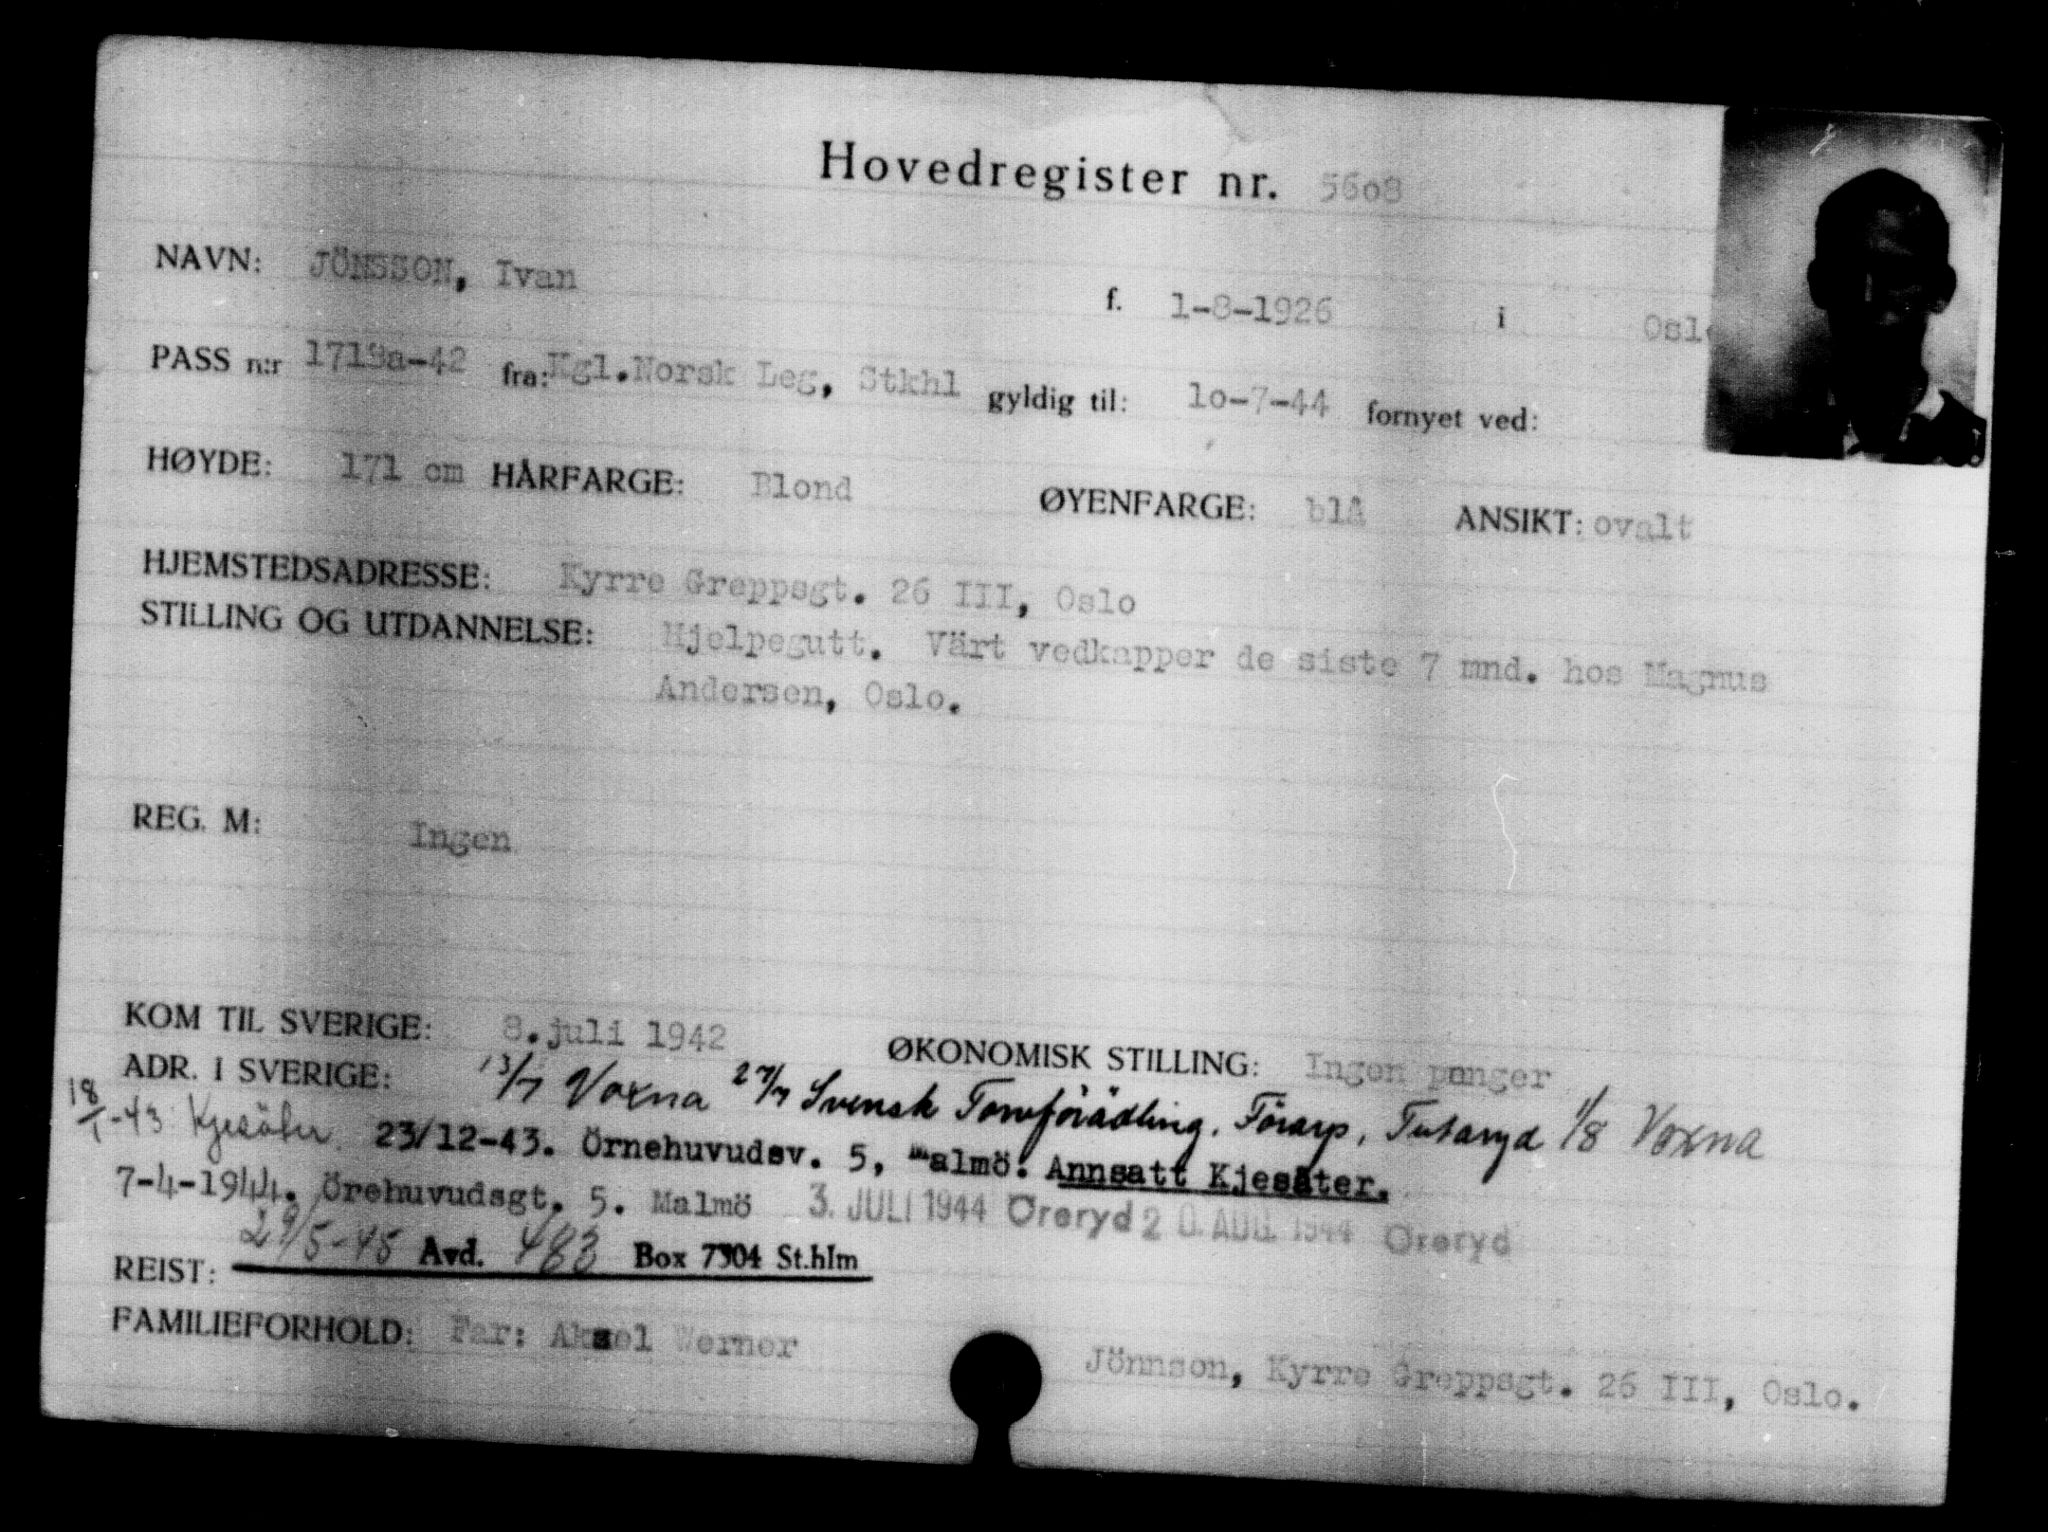 Hovedregister nr. 5608
NAVN: JÖNSSON, Ivan f. 1-8-1926 i Oslo
PASS n:r 1719a-42 fra: Kgl.Norsk Leg, Stkhl gyldig til: 10-7-44 fornyet ved:
HØYDE: 171 cm HÅRFARGE: Blond ØYENFARGE: blå ANSIKT: ovalt
HJEMSTEDSADRESSE: Kyrre Greppsgt. 26 III, Oslo
STILLING OG UTDANNELSE: Hjelpegutt. Värt vedkapper de siste 7 mnd. hos Magnus
Andersen, Oslo.
REG. M: Ingen
KOM TIL SVERIGE: 8.juli 1942 ØKONOMISK STILLING: Ingen penger
ADR. I SVERIGE: 13/7 Voxna 27/7 Svensk Torvförädling, Förarp, Tutaryd 1/8 Voxna
18/1-43 Kjesäter 23/12-43. Örnehuvudsv. 5, Malmö. Annsatt Kjesäter.
7-4-1944. Örehuvudsgt. 5. Malmö 3. JULI 1944 Öreryd 20. AUG. 1944 Öreryd
29/5-45 Avd. 483 Box 7304 St.hlm
REIST:
FAMILIEFORHOLD: Far: Aksel Werner Jönnson, Kyrre Greppsgt. 26 III, Oslo.